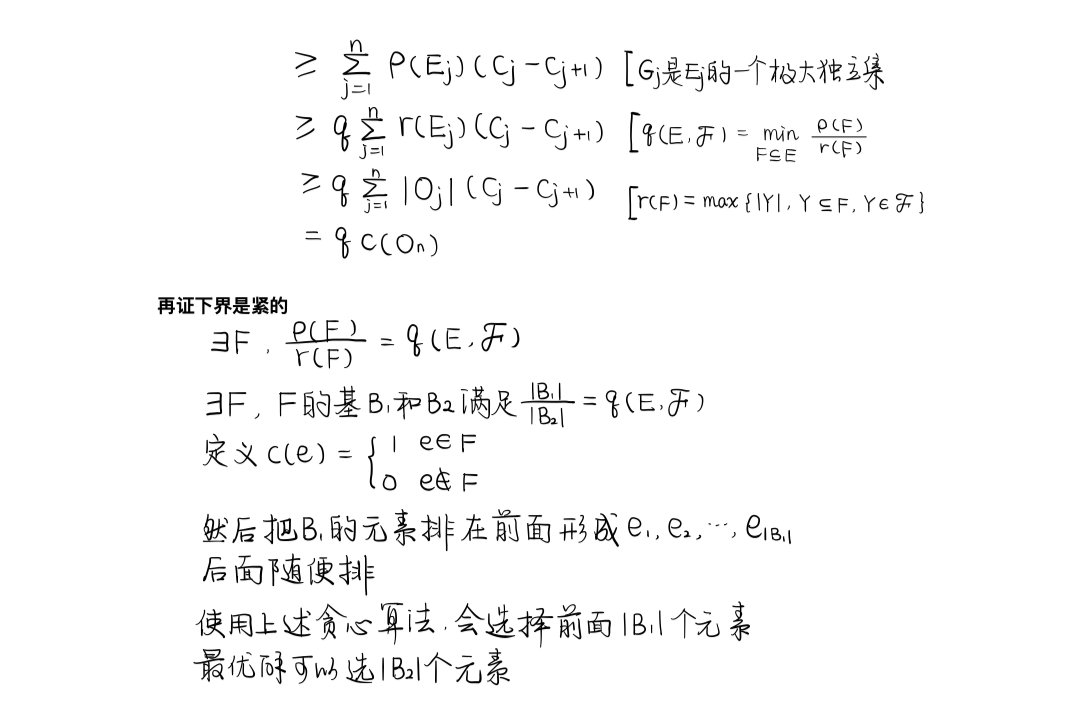 ≥ ∑_{j=1}^{n} ρ(E_j)(C_j - C_{j+1}) [G_j是E_j的一个极大独立集
≥ q ∑_{j=1}^{n} r(E_j)(C_j - C_{j+1}) [q(E,ℱ) = min_{F⊆E} ρ(F)/r(F)
≥ q ∑_{j=1}^{n} |O_j|(C_j - C_{j+1}) [r(F) = max{|Y|, Y⊆F, Y∈ℱ}
= q c(O_n)
再证下界是紧的
∃F, ρ(F)/r(F) = q(E,ℱ)
∃F, F的基B₁和B₂满足 |B₁|/|B₂| = q(E,ℱ)
定义 c(e) = { 1 e∈F
0 e∉F
然后把B₁的元素排在前面形成e₁, e₂, ⋯, e_{|B₁|}
后面随便排
使用上述贪心算法, 会选择前面|B₁|个元素
最优解可以选|B₂|个元素